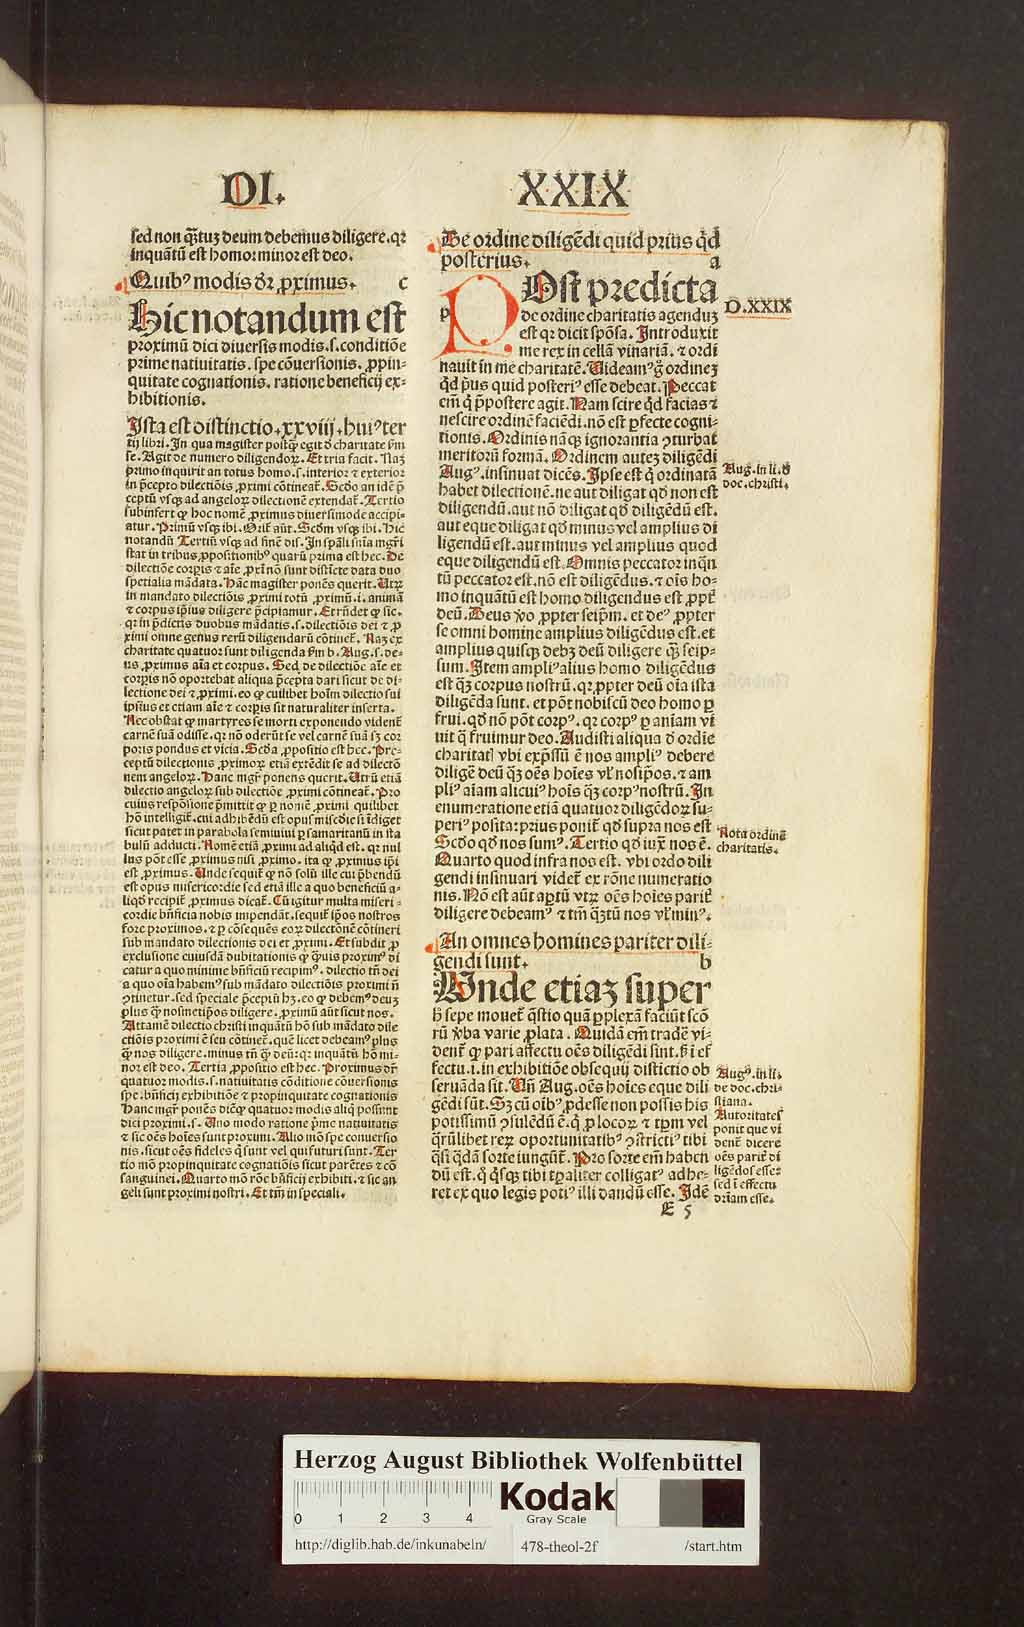 DI.
XXIX
sed non q̄ꝫtuꝫ deum debemus diligere. qꝛ
inquātū est homo: minor est deo.
Quibꝰ modis dꝛ ꝓximus. c
Hic notandum est
proximū dici diuersis modis. s. conditiōe
prime natiuitatis. spe cōuersionis. ꝓpin-
quitate cognationis. ratione beneficij ex-
hibitionis.
Ista est distinctio. xxviij. huiꝰ ter
tij libri. In qua magister postq̄ꝫ egit d̄ charitate ẜm
se. Agit de numero diligendoꝝ. Et tria facit. Naꝫ
primo inquirit an totus homo. s. interior ⁊ exterior
in p̄cepto dilectiōis ꝓximi cōtineat̄. Scd̄o an idē p̄
ceptū vsqꝫ ad angeloꝝ dilectionē extendat̄. Tertio
subinfert ꝙ hoc nomē ꝓximus diuersimode accipi-
atur. Primū vsqꝫ ibi. Orit̄ aūt. Scd̄m vsqꝫ ibi. Hic
notandū Tertiū vsqꝫ ad finē dis. In sp̄ali sn̄ia mgr̄i
stat in tribus ꝓpositionibꝰ quarū prima est hec. De
dilectiōe corpꝑis ⁊ aīe ꝓxīi nō sunt distīcte data duo
specialia mādata. Hāc magister ponēs querit. Utꝝ
in mandato dilectiōis ꝓximi totꝰ ꝓximꝰ. i. animā
⁊ corpus ip̄ius diligere p̄cipiamur. Et rn̄det ꝙ sic.
qꝛ in p̄dictis duobus mādatis. s. dilectiōis dei ⁊ ꝓ
ximi omne genus rerū diligendarū cōtinet̄. Naꝫ ex
charitate quatuor sunt diligenda ẜm b. Aug. s. de-
us ꝓximus aīa et corpus. Sed de dilectiōe aīe et
corpꝑis nō oportebat aliqua p̄cepta dari sicut de di-
lectione dei ⁊ ꝓximi. eo ꝙ cuilibet hoīm dilectio sui
ipsius et etiam aīe ⁊ corpꝑis sit naturaliter inserta.
Nec obstat ꝙ martyres se morti exponendo vident̄
carnē suā odisse. qꝛ nō oderūt se vel carnē suā sꝫ cor
poris pondus et vicia. Scd̄a ꝓpositio est hec. Pre-
ceptū dilectionis ꝓximoꝝ etiā extēdit se ad dilectō
nem angeloꝝ. Hanc mgr̄ ponens querit. Utrū etiā
dilectio angeloꝝ sub dilectiōe ꝓximi cōtineat̄. Pro
cuius respōsione p̄mittit ꝙ ꝑ nomē ꝓximi quilibet
hō intelligit̄. cui adhibēdū est opus misc̄die si īdiget
sicut patet in parabola semiuiui ꝑ samaritanū in sta
bulū adducti. Nomē etiā ꝓximi ad aliqd̄ est. qꝛ nul
lus pōt esse ꝓximus nisi ꝓximo. ita ꝙ ꝓximus ip̄i
est ꝓximus. Unde sequit̄ ꝙ nō solū ille cui p̄bendū
est opus misericordie sed etiā ille a quo beneficiū a-
liqd̄ recipit̄ ꝓximus dicat̄. Cū igitur multa miseri-
cordie bn̄ficia nobis impendāt. sequit̄ ip̄os nostros
fore proximos. ⁊ ꝑ cōsequēs eoꝝ dilectionē cōtineri
sub mandato dilectionis dei et ꝓximi. Et subdit ꝓ
exclusione cuiusdā dubitationis ꝙ q̄uis proximꝰ di
catur a quo minime bn̄ficiū recipimꝰ. dilectio tn̄ dei
a quo oīa habemꝰ sub mādato dilectiōis proximi nō
ꝯtinetur. sed speciale p̄ceptū hꝫ. eo ꝙ debemꝰ deuꝫ
plus q̄ꝫ nosmetip̄os diligere. ꝓximū aūt sicut nos.
Attamē dilectio christi inquātū hō sub mādato dile
ctiōis proximi ē seu cōtinet̄. quē licet debeamꝰ plus
q̄ꝫ nos diligere. minus tn̄ q̄ꝫ deū: qꝛ inquātū hō mi-
nor est deo. Tertia ꝓpositio est hec. Proximus dr̄
quatuor modis. s. natiuitatis cōditione cōuersionis
spe. bn̄ficij exhibitiōe ⁊ propinquitate cognationis
Hanc mgr̄ ponēs dicēqꝫ quatuor modis aliq̄ possunt
dici proximi. s. Uno modo ratione p̄me natiuitatis
⁊ sic oēs hoīes sunt proximi. Alio mō spe conuersio
nis. sicut oēs fideles q̄ sunt vel qui futuri sunt. Ter
tio mō propinquitate cognatiōis sicut parētes ⁊ cō
sanguinei. Quarto mō rōe bn̄ficij exhibiti. ⁊ sic an
geli sunt proximi nostri. Et tm̄ in speciali.
De ordine diligēdi quid prius qd̄
posterius. a
POst predicta
p
de ordine charitatis agenduꝫ
est qꝛ dicit spōsa. Introduxit
me rex in cellā vinariā. ⁊ ordi
nauit in me charitatē. Uideamꝰ g̊ ordineꝫ
qd̄ p̄us quid posteriꝰ esse debeat. Peccat
em̄ q̄ p̄postere agit. Nam scire qd̄ facias ⁊
nescire ordinē faciēdi. nō est ꝑfecte cogni-
tionis. Ordinis nāqꝫ ignorantia ꝯturbat
meritorū formā. Ordinem auteꝫ diligēdi
Augꝰ. insinuat dicēs. Ipse est q̄ ordinatā
habet dilectionē. ne aut diligat qd̄ non est
diligendū. aut nō diligat qd̄ diligēdū est.
aut eque diligat qd̄ minus vel amplius di
ligendū est. aut minus vel amplius quod
eque diligendū est. Omnis peccator inqn̄
tū peccator est. nō est diligēdus. ⁊ oīs ho-
mo inquātū est homo diligendus est ꝓpt̄
deū. Deus ꝟo ꝓpter seip̄m. et deꝰ ꝓpter
se omni homine amplius diligēdus est. et
amplius quisqꝫ debꝫ deū diligere q̄ꝫ seip-
sum. Item ampliꝰ alius homo diligēdus
est q̄ꝫ corpus nostrū. qꝛ ꝓpter deū oīa ista
diligēda sunt. et pōt nobiscū deo homo ꝑ
frui. qd̄ nō pōt corpꝰ. qꝛ corpꝰ ꝑ aniam vi
uit q̄ fruimur deo. Audisti aliqua d̄ ordīe
charitatꝭ vbi exp̄ssū ē nos ampliꝰ debere
diligē deū q̄ꝫ oēs hoīes vl̓ nosip̄os. ⁊ am
pliꝰ aīam alicuiꝰ hoīs q̄ꝫ corpꝰ nostrū. In
enumeratione etiā quatuor diligēdoꝝ su-
periꝰ posita: prius ponit̄ qd̄ supra nos est
Scd̄o qd̄ nos sumꝰ. Tertio qd̄ iux̄ nos ē.
Quarto quod infra nos est. vbi ordo dili
gendi insinuari videt̄ ex rōne numeratio
nis. Nō est aūt aꝑtū vtꝝ oēs hoīes parit̄
diligere debeamꝰ ⁊ tm̄ q̄ꝫtū nos vl̓ minꝰ.
An omnes homines pariter dili-
gendi sunt. b
Unde etiaꝫ super
h̄ sepe mouet̄ q̄stio quā ꝑplexā faciūt scō
rū ꝟba varie ꝓlata. Quidā em̄ tradē vi-
dent̄ ꝙ pari affectu oēs diligēdi sint. sꝫ i ef
fectu. i. in exhibitiōe obsequij distīctio ob
seruāda sit. Uñ Aug. oēs hoīes eque dili
gēdi sūt. Sꝫ cū oībꝰ ꝓdesse non possis his
potissimū ꝯsulēdū ē. q̄ ꝓ locoꝝ ⁊ tp̄m vel
q̄rūlibet reꝝ oportunitatibꝰ ꝯstrictiꝰ tibi
q̄si q̄dā sorte iungūt̄. Pro sorte em̄ haben
dū est. q̄ q̄sqꝫ tibi tp̄aliter colligatꝰ adhe-
ret ex quo legis potiꝰ illi dandū esse. Idē
E 5
D. XXIX
Aug. in li. d̄
doc. christi.
Nota ordinē
charitatis.
Augꝰ. in li.
de doc. chri-
stiana.
Autoritates
ponit que vi
dent̄ dicere
oēs parit̄ di
ligēdos esse:
sed ī effectu
dr̄iam esse.
Herzog August Bibliothek Wolfenbüttel
0 1 2 3 4
Kodak
Gray Scale
http://diglib.hab.de/inkunabeln/ 478-theol-2f /start.htm